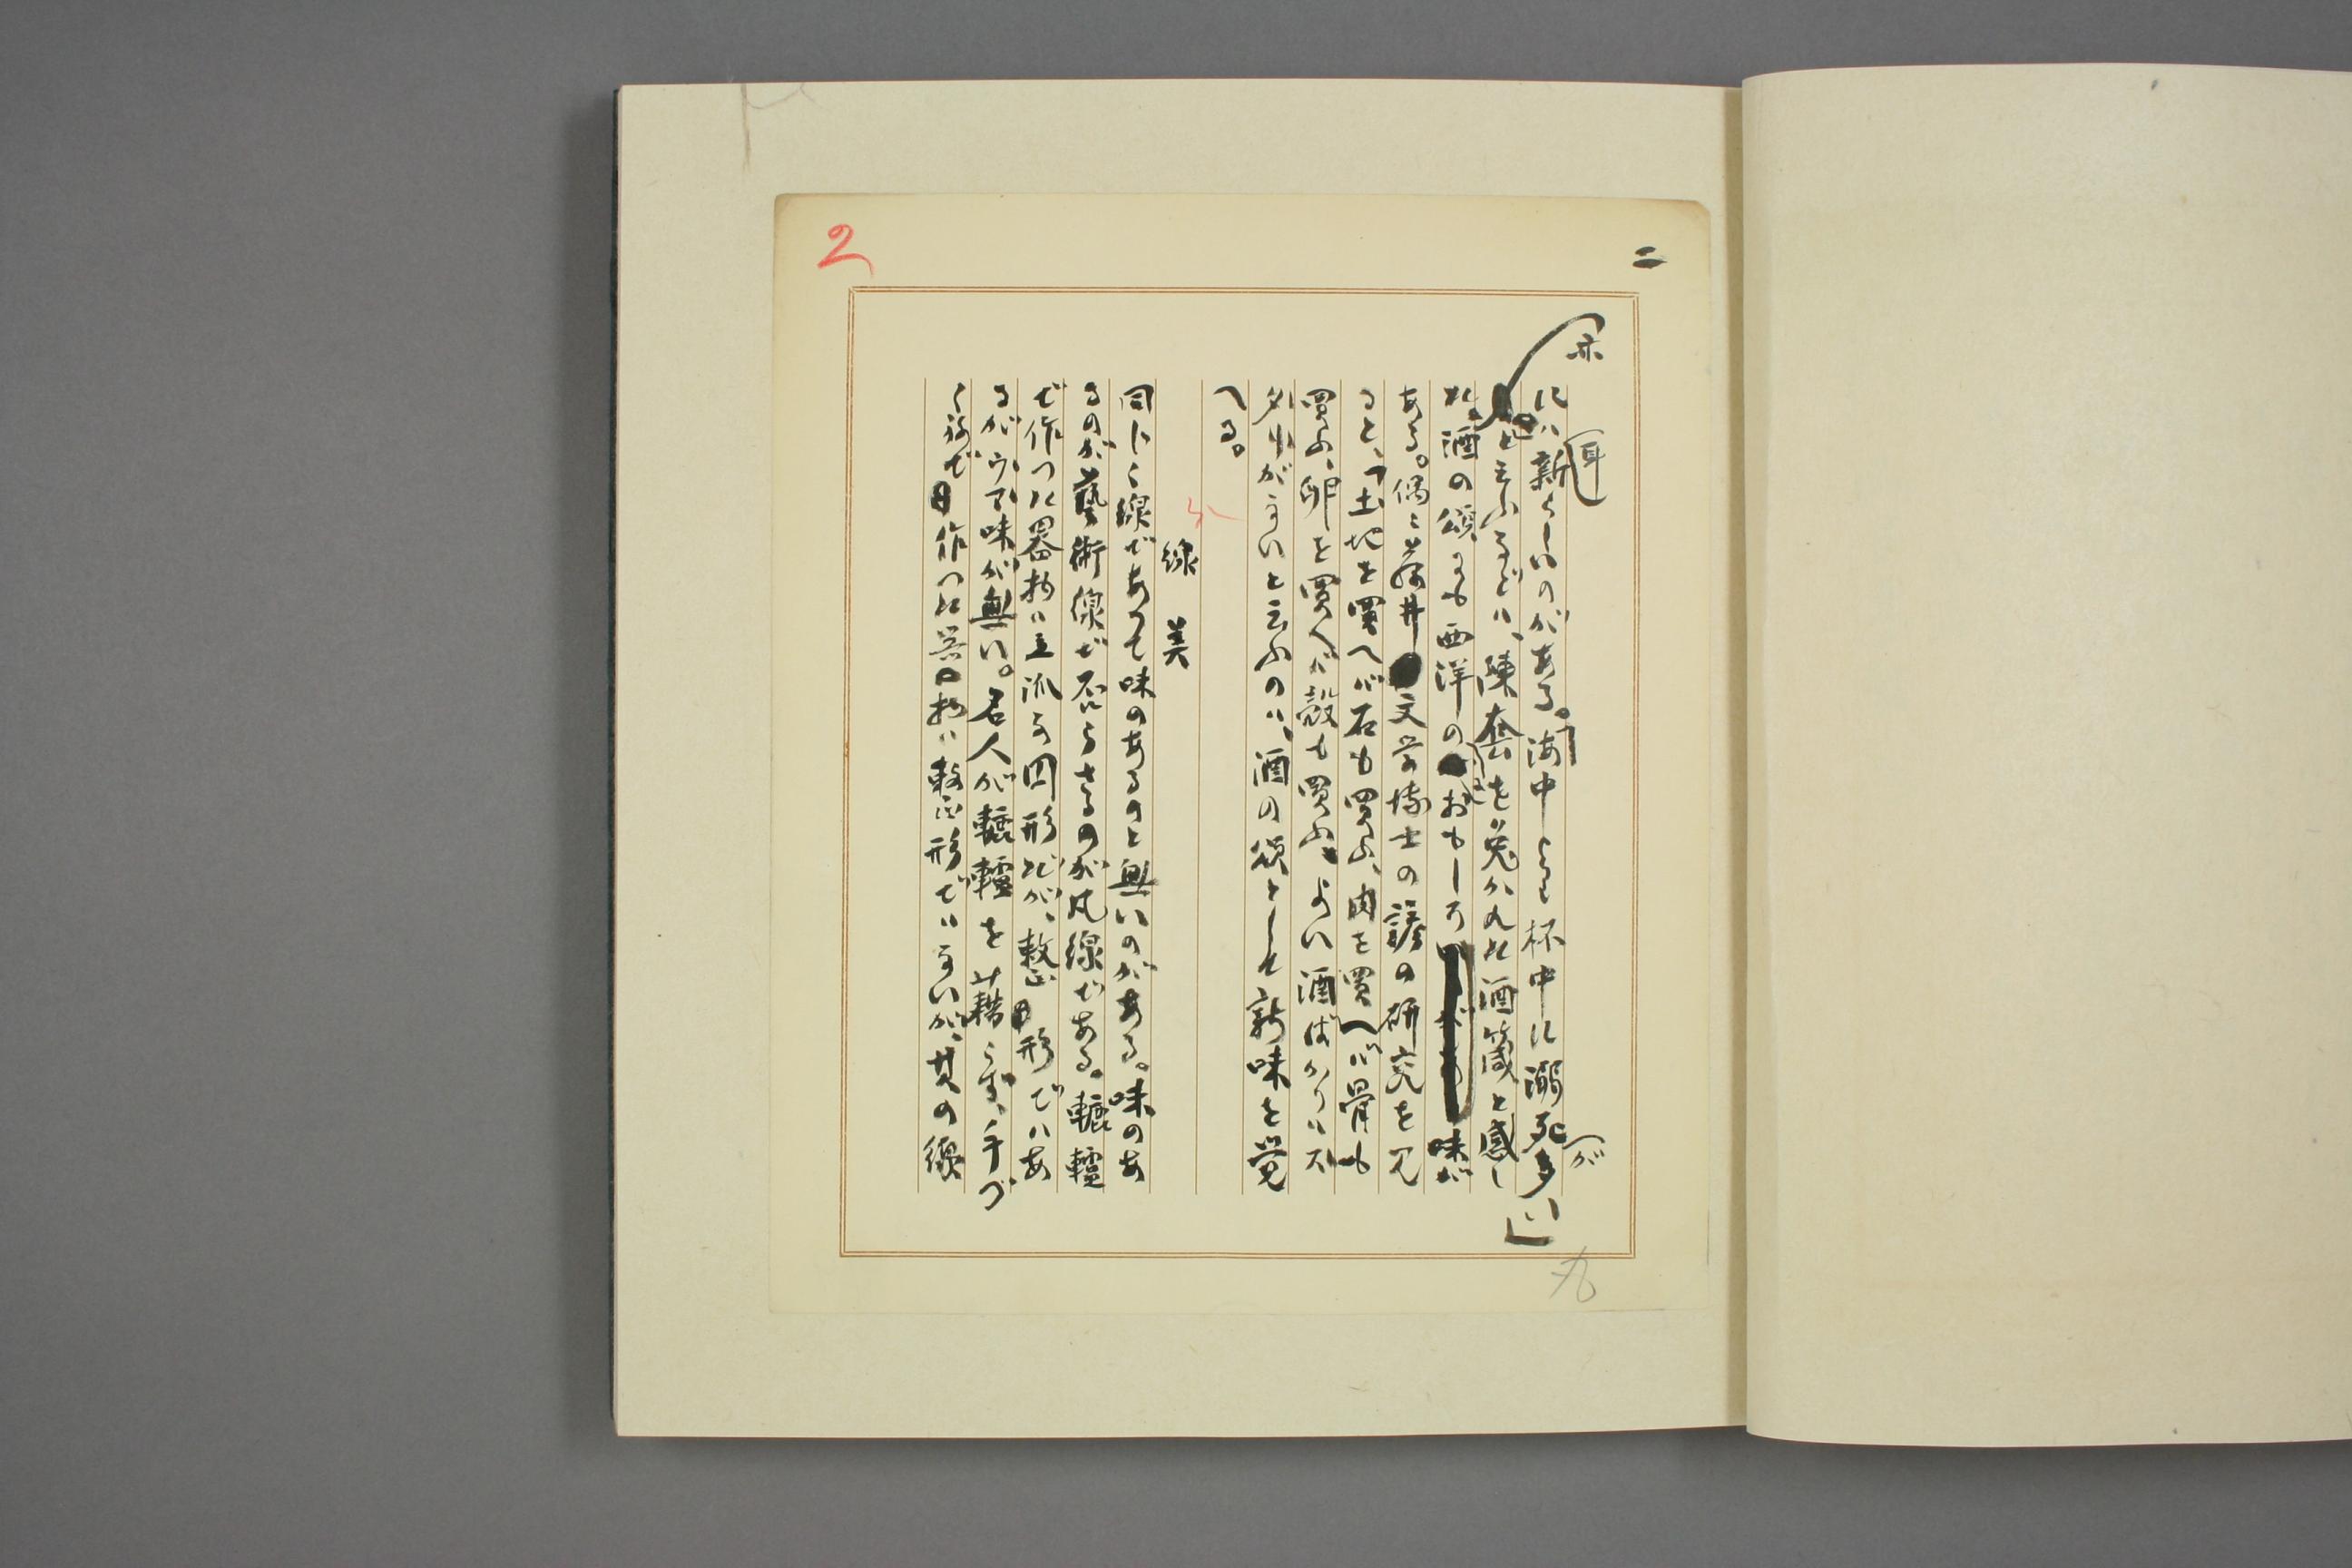 二
2
には耳新らしいのがある。「海中よりも杯中に溺死が多い」
と云ふなどは、陳套を免かれた酒箴と感じ
た。酒の頌にも西洋のはおもしろ味が
ある。偶々藤井文学博士の諺の研究を見
ると、「土地を買へば石も買ふ、肉を買へば骨も
買ふ、卵を買へば殻も買ふ、よい酒ばかりは
外がないと云ふのは、酒の頌として新味を覚
へる。
線 美
同じく線であつて味のあるのと無いのがある。味のあ
るのが藝術線で否らざるのが凡線である。轆轤
で作つた器物は立派な円形だが、整形ではあ
るが味が無い。名人が轆轤を藉らず、手づ
くねで作つた器物は整正形ではないが、其の線
九